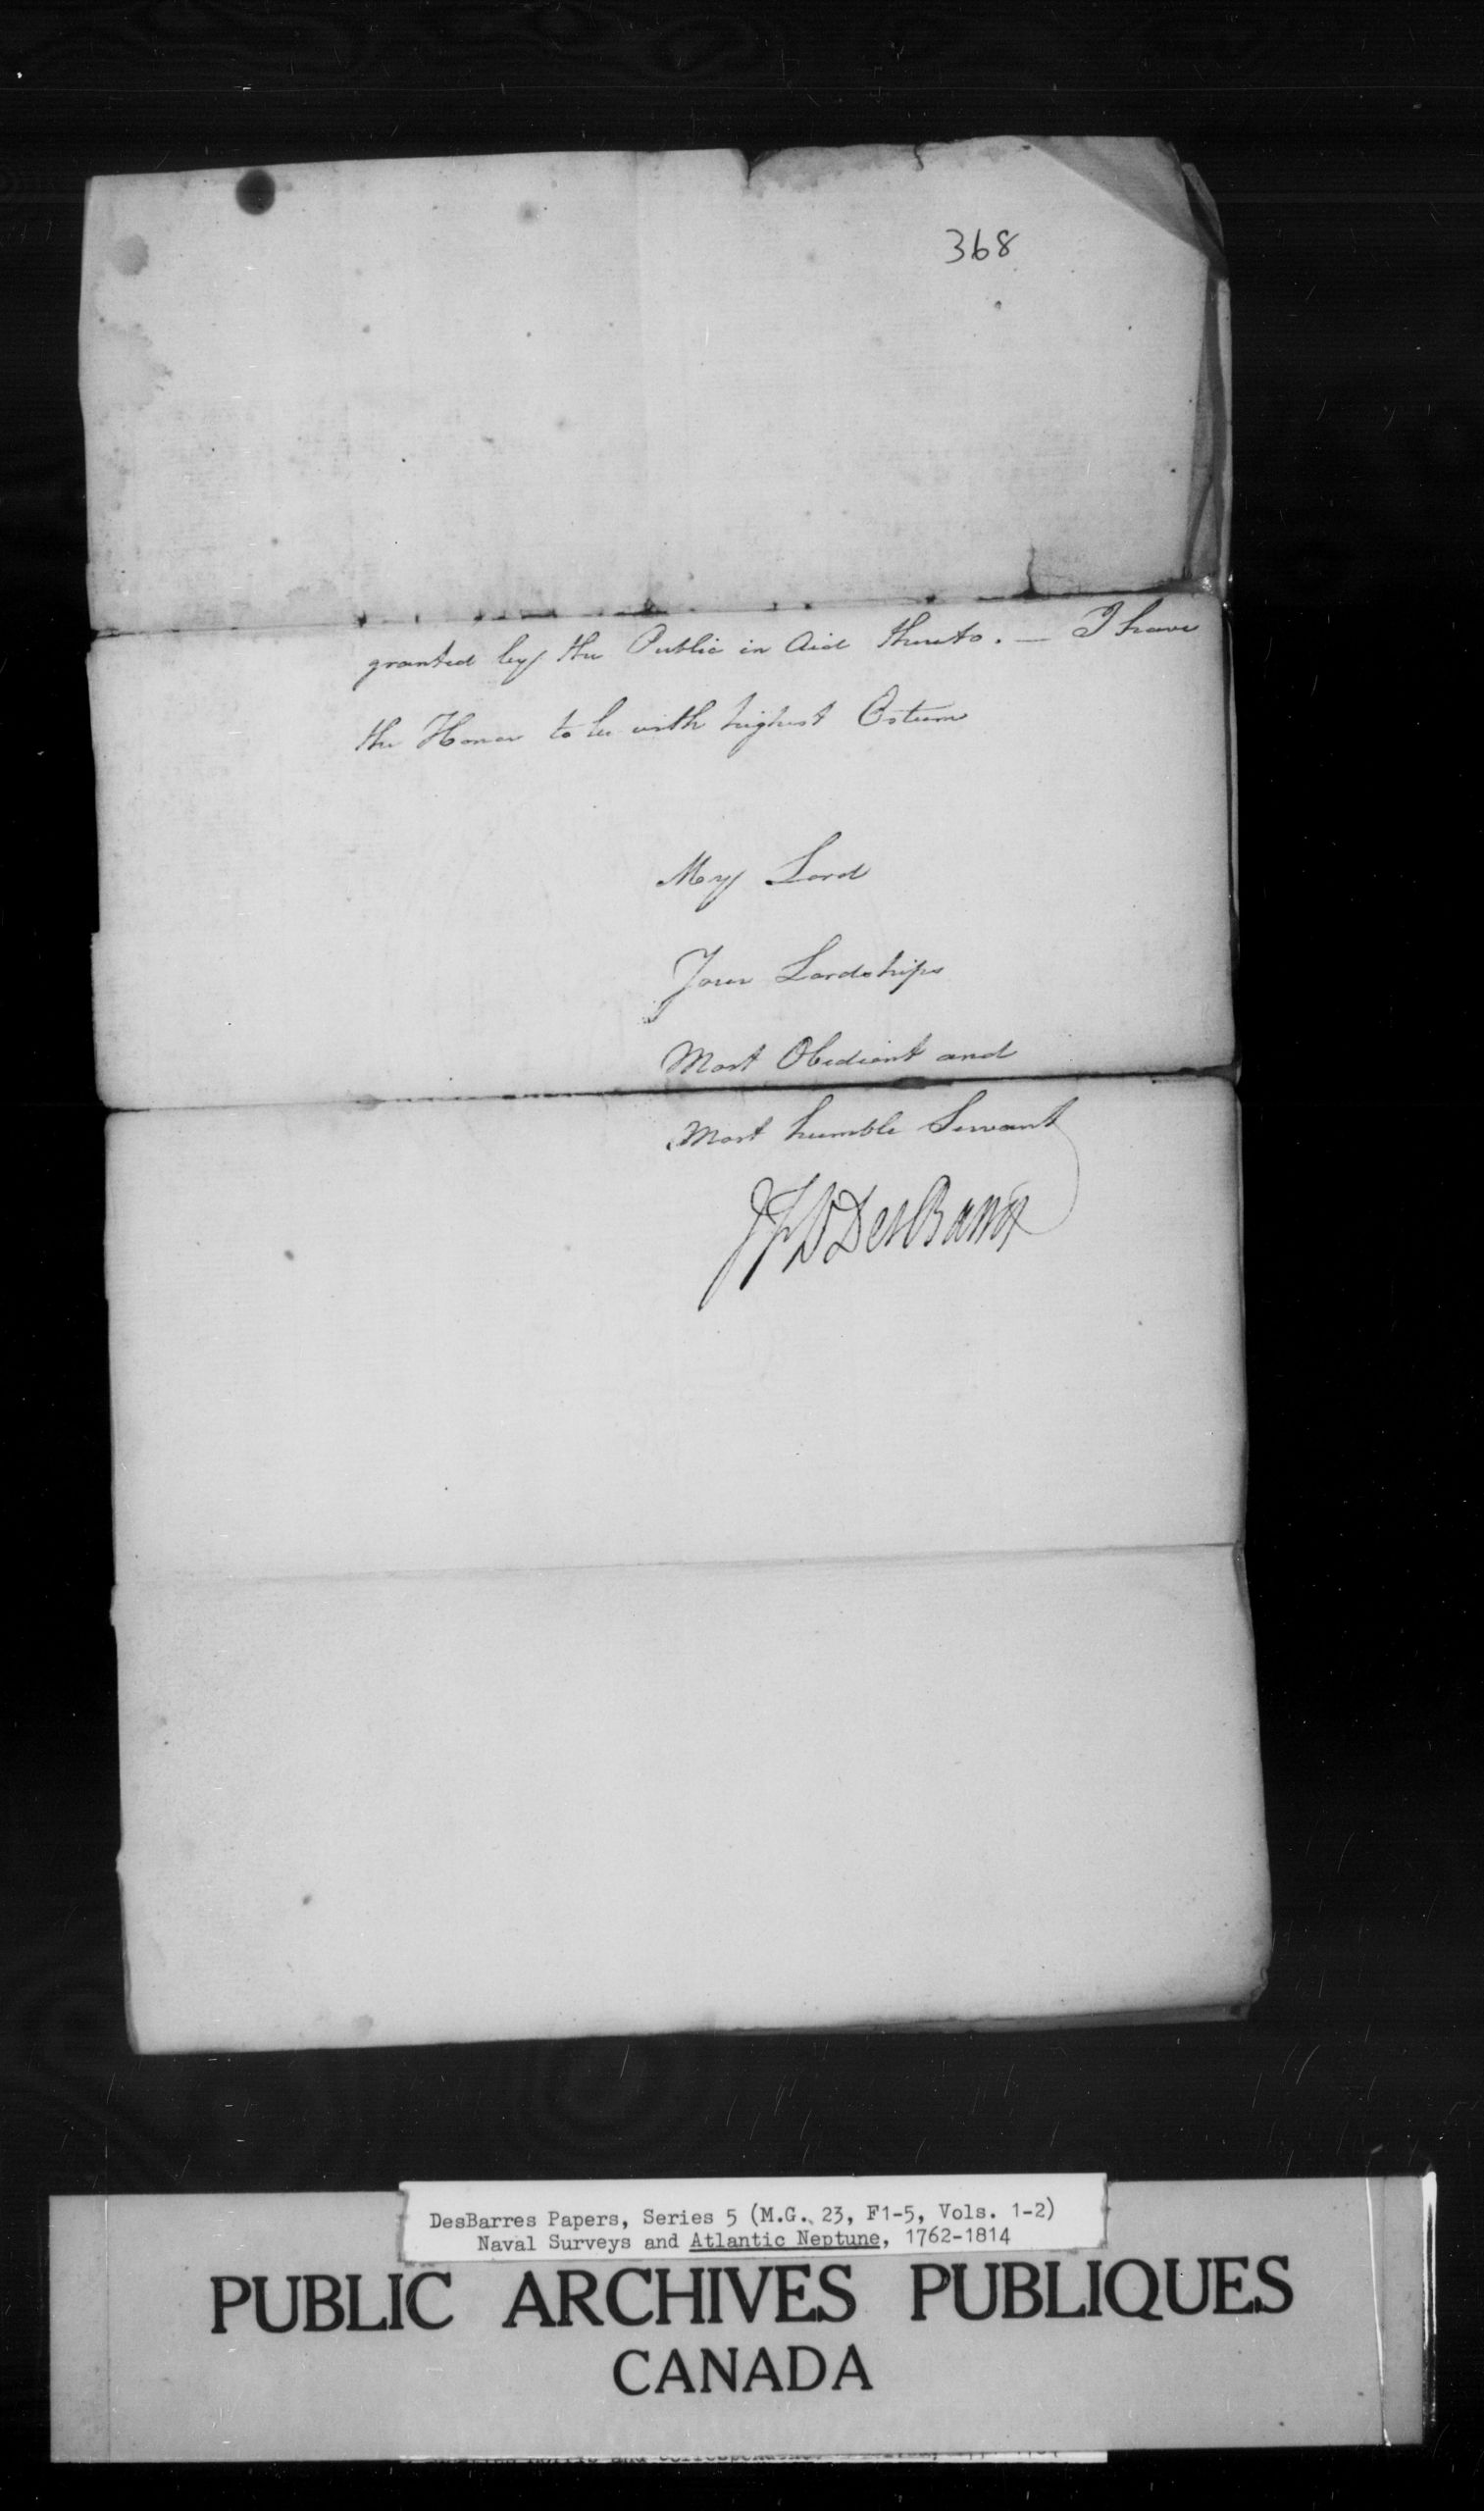 368
granted by the Public in Aid thereto. — I have
the Honor to be with highest Esteem
My Lord
Your Lordships
Most Obedient and
Most humble Servant
JFW DesBarres
DesBarres Papers, Series 5 (M.G. 23, F1-5, Vols. 1-2)
Naval Surveys and Atlantic Neptune, 1762-1814
PUBLIC ARCHIVES PUBLIQUES
CANADA